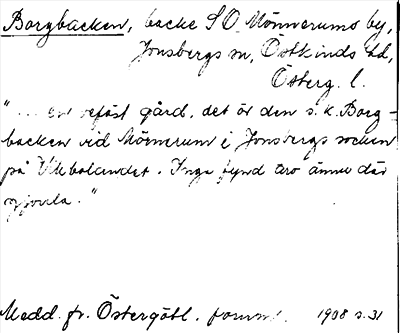 Borgbacken, backe S O Mönnerums by,
Jonsbergs sn, Östkinds hd,
Österg. l.
"... en befäst gård, det är den s.k. Borg-
backen vid Mönnerum i Jonsbergs socken
på Vikbolandet. Inga fynd äro ännu där
gjorda."
Medd. fr. Östergötl. fornm. 1908 s. 31